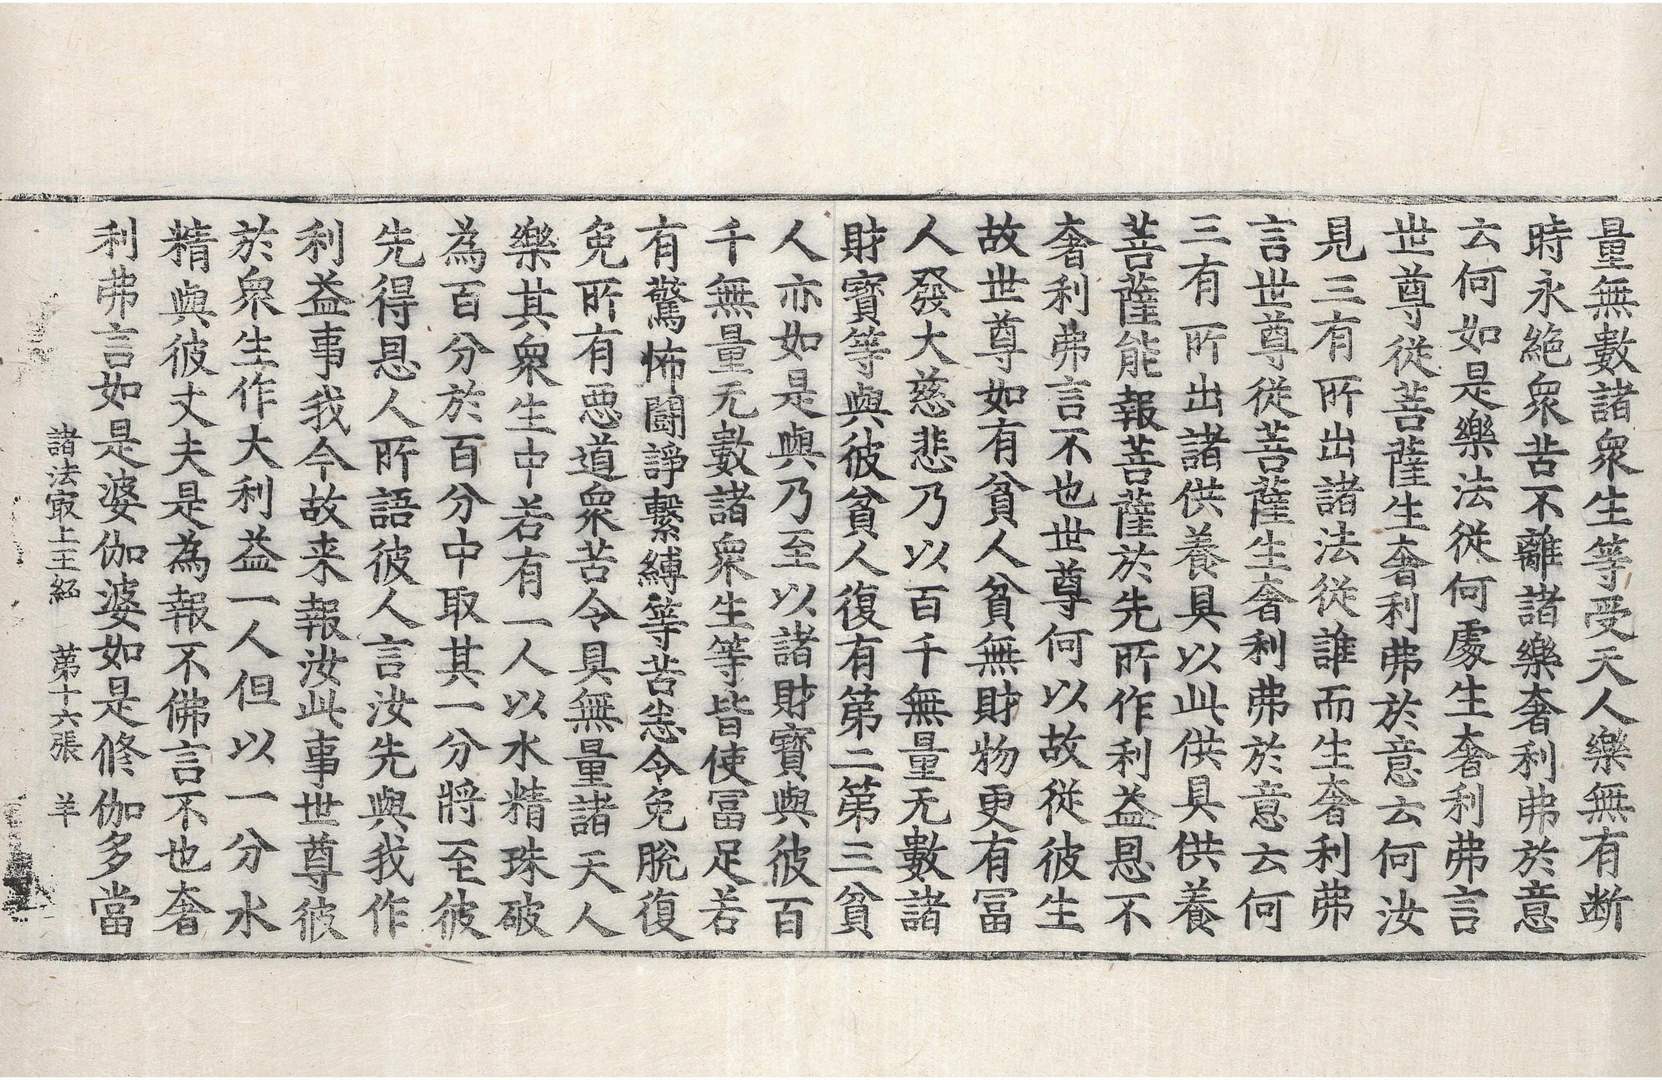 量無數諸衆生等受天人樂無有断
時永絕衆苦不離諸樂奢利弗於意
云何如是樂法從何處生奢利弗言
世尊從菩薩生奢利弗於意云何汝
見三有所出諸法從誰而生奢利弗
言世尊從菩薩生奢利弗於意云何
三有所出諸供養具以此供具供養
菩薩能報菩薩於先所作利益恩不
奢利弗言不也世尊何以故從彼生
故世尊如有貧人貧無財物更有冨
人發大慈悲乃以百千無量无數諸
財寶等與彼貧人復有第二第三貧
人亦如是與乃至以諸財寶與彼百
千無量无數諸衆生等皆使冨足若
有驚怖鬪諍繫縛等苦悉令免脫復
免所有悪道衆苦令具無量諸天人
樂其衆生中若有一人以水精珠破
為百分於百分中取其一分將至彼
先得恩人所語彼人言汝先與我作
利益事我今故来報汝此事世尊彼
於衆生作大利益一人但以一分水
精與彼丈夫是為報不佛言不也奢
利弗言如是婆伽婆如是修伽多當
諸法㝡上王經　第十六張　羊